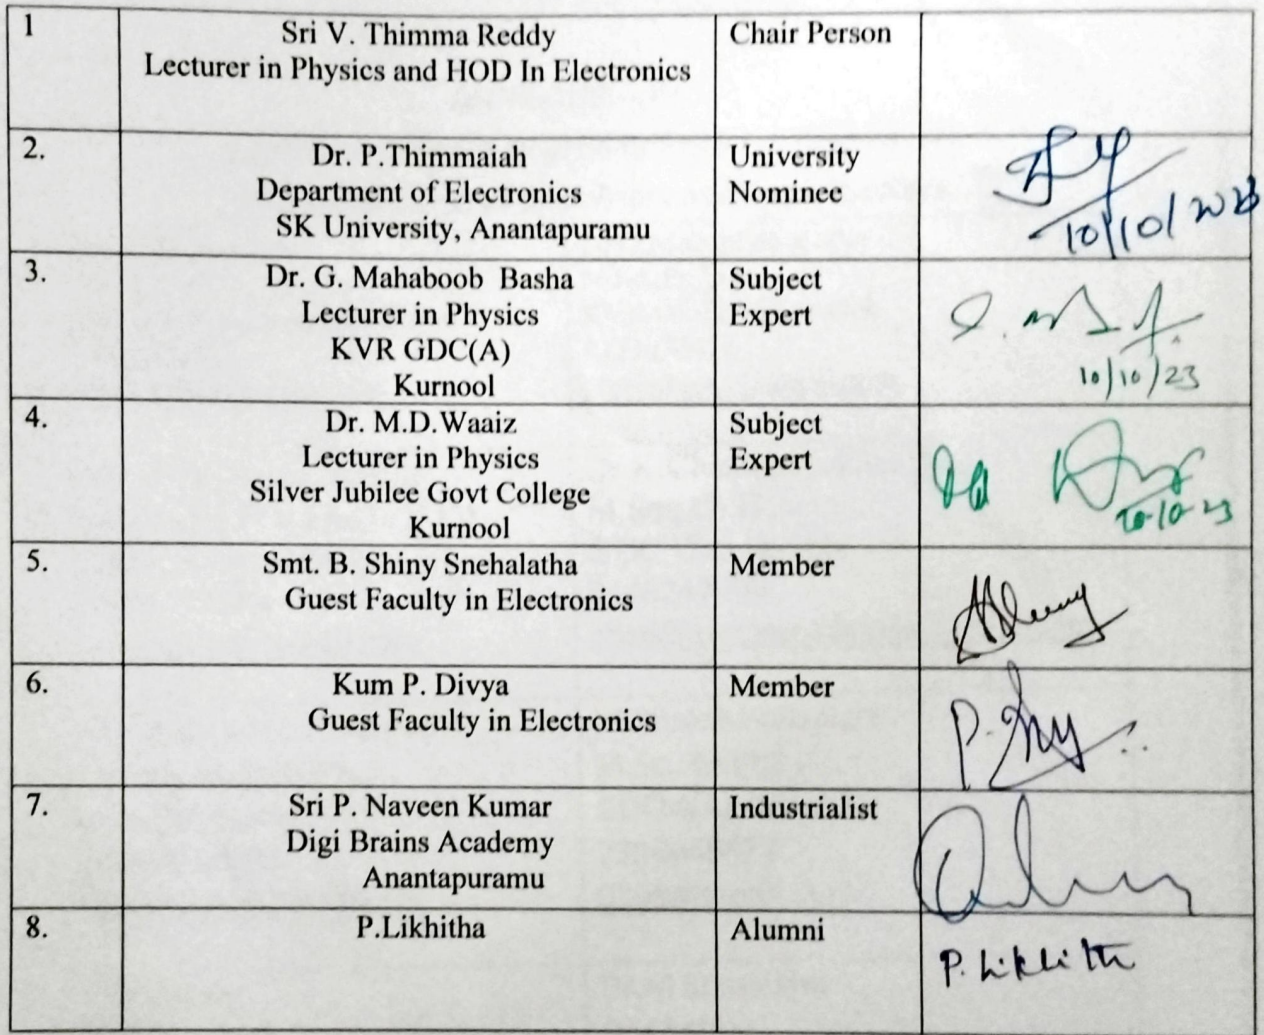 1
Sri V. Thimma Reddy
Lecturer in Physics and HOD In Electronics
Chair Person
2.
Dr. P.Thimmaiah
Department of Electronics
SK University, Anantapuramu
University
Nominee
10/10/2023
3.
Dr. G. Mahaboob Basha
Lecturer in Physics
KVR GDC(A)
Kurnool
Subject
Expert
10/10/23
4.
Dr. M.D.Waaiz
Lecturer in Physics
Silver Jubilee Govt College
Kurnool
Subject
Expert
10-10-23
5.
Smt. B. Shiny Snehalatha
Guest Faculty in Electronics
Member
6.
Kum P. Divya
Guest Faculty in Electronics
Member
7.
Sri P. Naveen Kumar
Digi Brains Academy
Anantapuramu
Industrialist
8.
P.Likhitha
Alumni
P. Likhitha